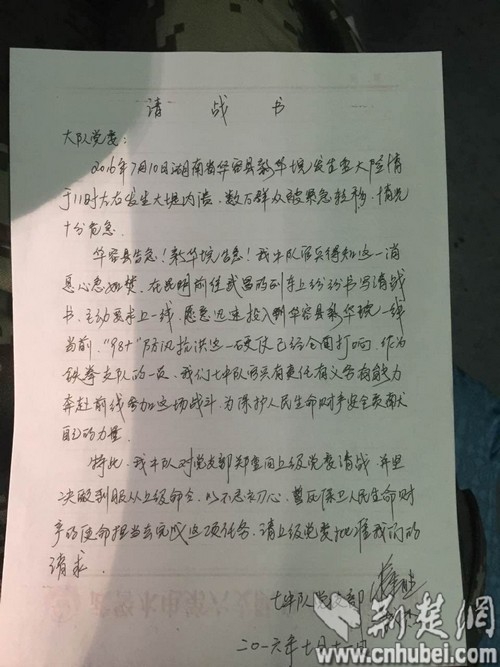 请战书
大队党委:
2016年7月10日湖南省华容县新华垸发生重大险情
于11时左右发生大堤内溃，数万群众被紧急转移，情况
十分危急。
华容县告急！新华垸告急！我中队官兵得知这一消
息心急如焚，在昆明前往武昌的列车上纷纷书写请战
书，主动要求上一线，愿意迅速投入到华容县新华垸一线
当前，“98+”防汛抗洪这一硬仗已经全面打响，作为
铁拳支队的一员，我们七中队官兵有责任有义务有能力
奔赴前线参加这场战斗，为保护人民生命财产安全贡献
自己的力量。
特此，我中队党支部郑重向上级党委请战，并坚
决做到服从上级命令，以不忘初心，誓死保卫人民生命财
产的使命担当去完成这项任务，请上级党委批准我们的
请求。
七中队党支部
二〇一六年七月十
荆楚网
www.cnhubei.com